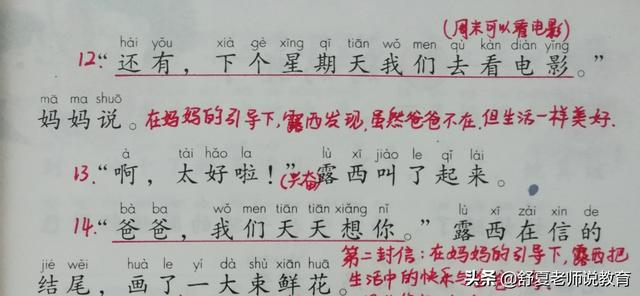 (周末可以看电影)
hái yǒu xià gè xīng qī tiān wǒ men qù kàn diàn yǐng
12.“还有，下个星期天我们去看电影。”
mā ma shuō
妈妈说。在妈妈的引导下，露西发现，虽然爸爸不在，但生活一样美好.
à tài hǎo la lù xī jiào le qǐ lái
13.“啊，太好啦！”(兴奋)露西叫了起来。
bà ba wǒ men tiān tiān xiǎng nǐ lù xī zài xìn de
14.“爸爸，我们天天想你。”露西在信的
第二封信：在妈妈的引导下，露西把
jié wěi huà le yí dà shù xiān huā
结尾，画了一大束鲜花。生活中的快乐与
头条 @舒夏老师说教育